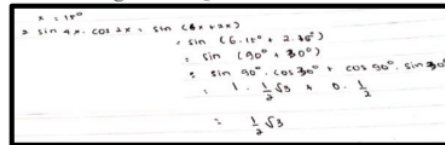 x = 15°
2 sin 4x. cos 2x = sin (6x+2x)
= sin (6.15° + 2.15°)
= sin (90° + 30°)
= sin 90°. cos 30° + cos 90°. sin 30°
= 1. 1/2 √3 + 0. 1/2
= 1/2 √3